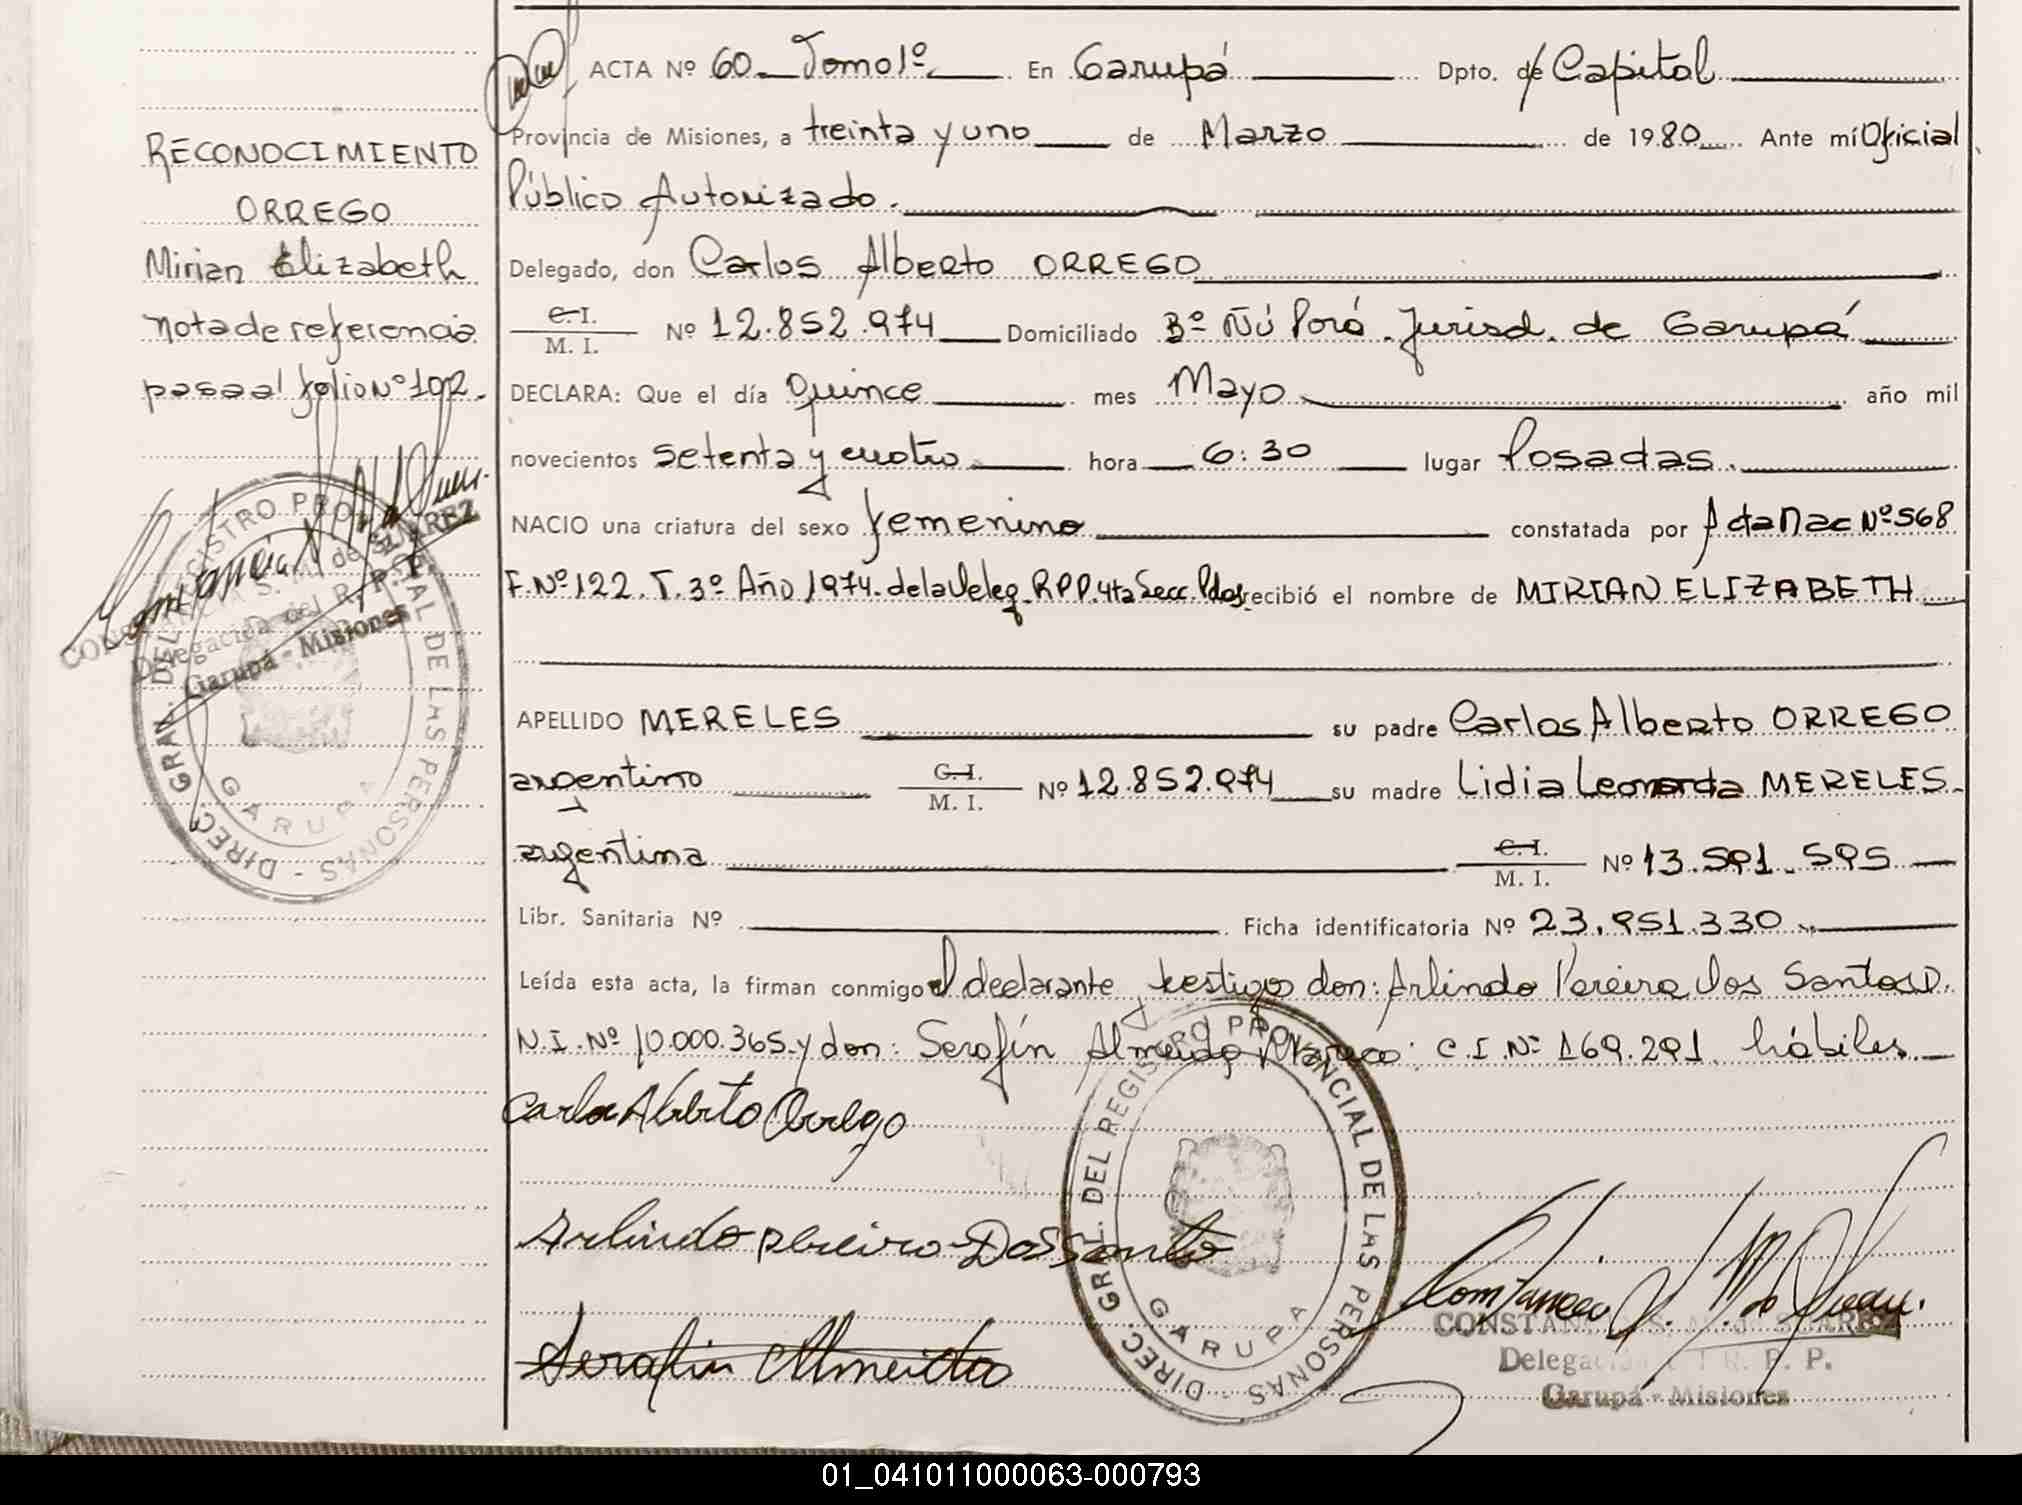 RECONOCIMIENTO
ORREGO
Mirian Elizabeth
nota de referencia
pasa al folio Nº 102.
ACTA Nº 60 Tomo 1º En Garupá Dpto. de Capital
Provincia de Misiones, a treinta y uno de Marzo de 1980 Ante mí Oficial
Público Autorizado.
Delegado, don Carlos Alberto ORREGO
C. I.
M. I. Nº 12.852.974 Domiciliado Bº Ñú Porá. Jurisd. de Garupá
DECLARA: Que el día quince mes Mayo año mil
novecientos setenta y cuatro hora 6:30 lugar Posadas.
NACIO una criatura del sexo femenino constatada por Acta Nac Nº 568
F. Nº 122. T. 3º Año 1974. de la Deleg. R.P.P. 4ta Secc. Pdas recibió el nombre de MIRIAN ELIZABETH
APELLIDO MERELES su padre Carlos Alberto ORREGO
argentino C. I. M. I. Nº 12.852.974 su madre Lidia Leonarda MERELES
argentina C. I. M. I. Nº 13.591.595
Libr. Sanitaria Nº Ficha identificatoria Nº 23.951.330
Leída esta acta, la firman conmigo el declarante, testigo don: Arlindo Pereira dos Santos D.
N.I. Nº 10.000.365 y don: Serafín Almeida C.I. Nº 169.291 hábiles
Carlos Alberto Orrego
Arlindo pereira Dos Santo
Serafin Almeida
DIREC. GRAL. DEL REGISTRO PROVINCIAL DE LAS PERSONAS -
GARUPA
DIREC. GRAL. DEL REGISTRO PROVINCIAL DE LAS PERSONAS -
GARUPA
de SUAREZ
Delegación del R. P. P.
Garupá - Misiones
CONSTANCIA S. M. de SUAREZ
Delegación del R. P. P.
Garupá - Misiones
01_041011000063-000793